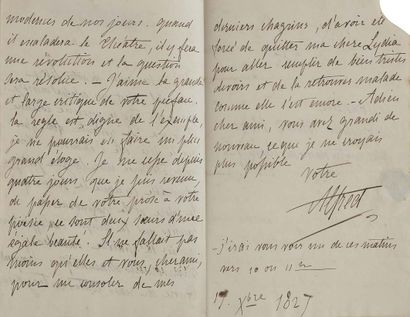 modernes de nos jours. quand
il escaladera le théâtre, il y fera
une révolution et la question
sera résolue. — J'aime la grande
et large critique de votre préface.
la règle est digne de l'exemple,
je ne pourrais en faire un plus
grand éloge. Je me depuis
quatre jours, que je suis revenu
de passer de votre prose à votre
poésie ce sont deux sœurs d'une
égale beauté. Il ne fallait pas
moins qu'elles et vous, cher ami,
pour me consoler de mes
derniers chagrins, d'avoir été
forcé de quitter ma chère Lydia
pour aller remplir de bien tristes
devoirs et de la retrouver malade
comme elle l'est encore. — Adieu
cher ami, vous avez grandi de
nouveau, ce que je ne croyais
plus possible
Votre
Alfred
- j'irai vous voir un de ces matins
vers 10 ou 11 
17. Xbre 1827